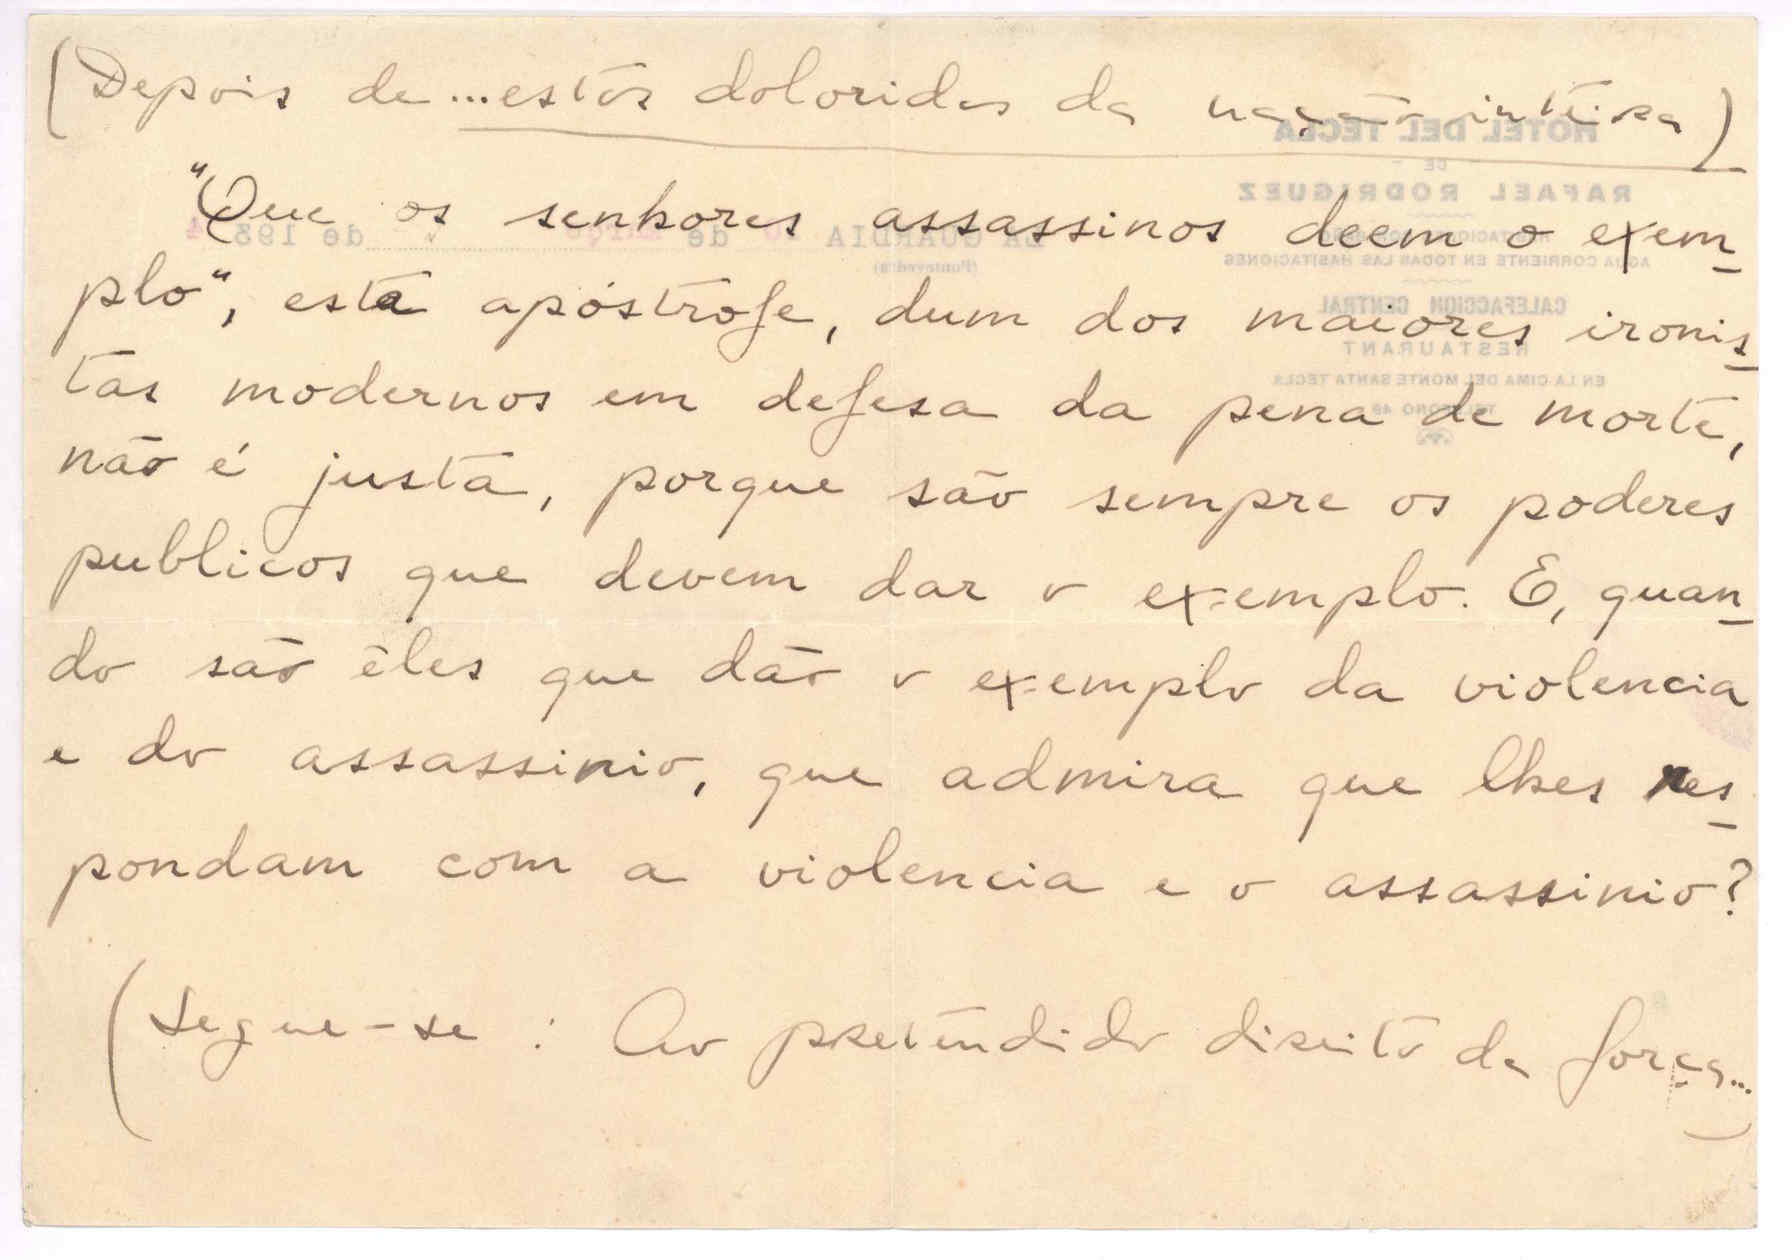 (Depois de ...estos doloridos da nação inteira)
"Que os senhores assassinos deem o exem-
plo", esta apóstrofe, dum dos maiores ironis-
tas modernos em defesa da pena de morte,
não é justa, porque são sempre os poderes
publicos que devem dar o exemplo. E, quan-
do são êles que dão o exemplo da violencia
e do assassinio, que admira que lhes res-
pondam com a violencia e o assassinio?
(Segue-se : Ao pretendido direito da força...)
HOTEL DEL TECLA
DE
RAFAEL RODRIGUEZ
AGUA CORRIENTE EN TODAS LAS HABITACIONES
CALEFACCION CENTRAL
RESTAURANT
EN LA CIMA DEL MONTE SANTA TECLA
LA GUARDIA de de 193
(Pontevedra)